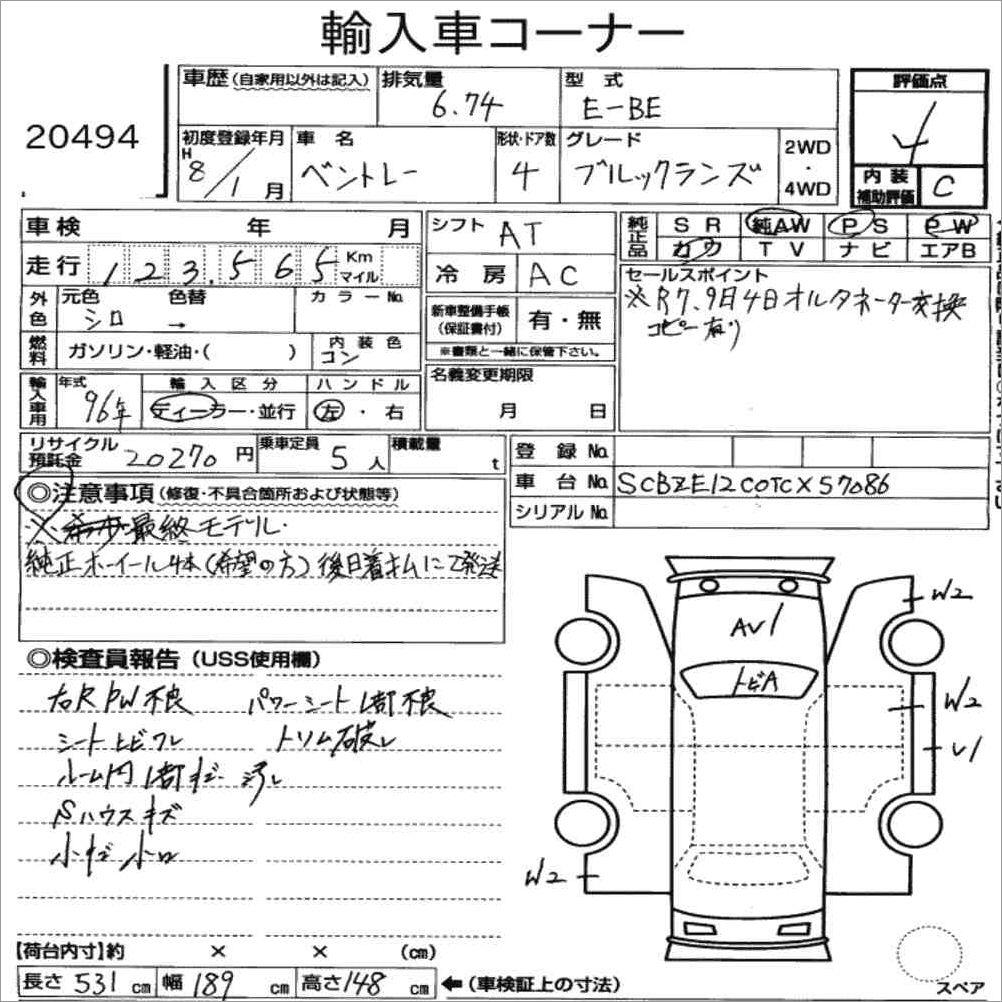 輸入車コーナー
20494
車歴 (自家用以外は記入)
排気量
6.74
型 式
E-BE
評価点
4
初度登録年月
H 8/1月
車 名
ベントレー
形状・ドア数
4
グレード
ブルックランズ
2WD
・
4WD
内 装
補助評価
C
車検 年 月
シフト AT
純正品
SR 純AW PS PW
カワ TV ナビ エアB
走行 123,565 Km マイル
冷 房 AC
セールスポイント
※R7.9月4日オルタネーター交換
コピー有り
外色
元色 色替
シロ →
カラーNo.
新車整備手帳
(保証書付)
有・無
※書類と一緒に保管下さい。
燃料
ガソリン・軽油・( )
内装色
コン
名義変更期限
月 日
輸入車用
年式
96年
輸入区分
ディーラー・並行
ハンドル
左・右
リサイクル
預託金
20270 円
乗車定員
5 人
積載量
t
登 録 No.
車 台 No. SCBZE12C0TCX57086
シリアル No.
◎注意事項 (修復・不具合箇所および状態等)
※ 最終モデル.
純正ホイール4本(希望の方)後日着払にて発送
◎検査員報告 (USS使用欄)
右R PW不良 パワーシート1部不良
シートヒビワレ トリム破レ
ルーム内1部キズ 汚レ
Sハウスキズ
小キズ 小凹
AV1
トビA
W2
W2
V1
W2
スペア
【荷台内寸】約 × × (cm)
長さ 531 cm 幅 189 cm 高さ 148 cm ←(車検証上の寸法)